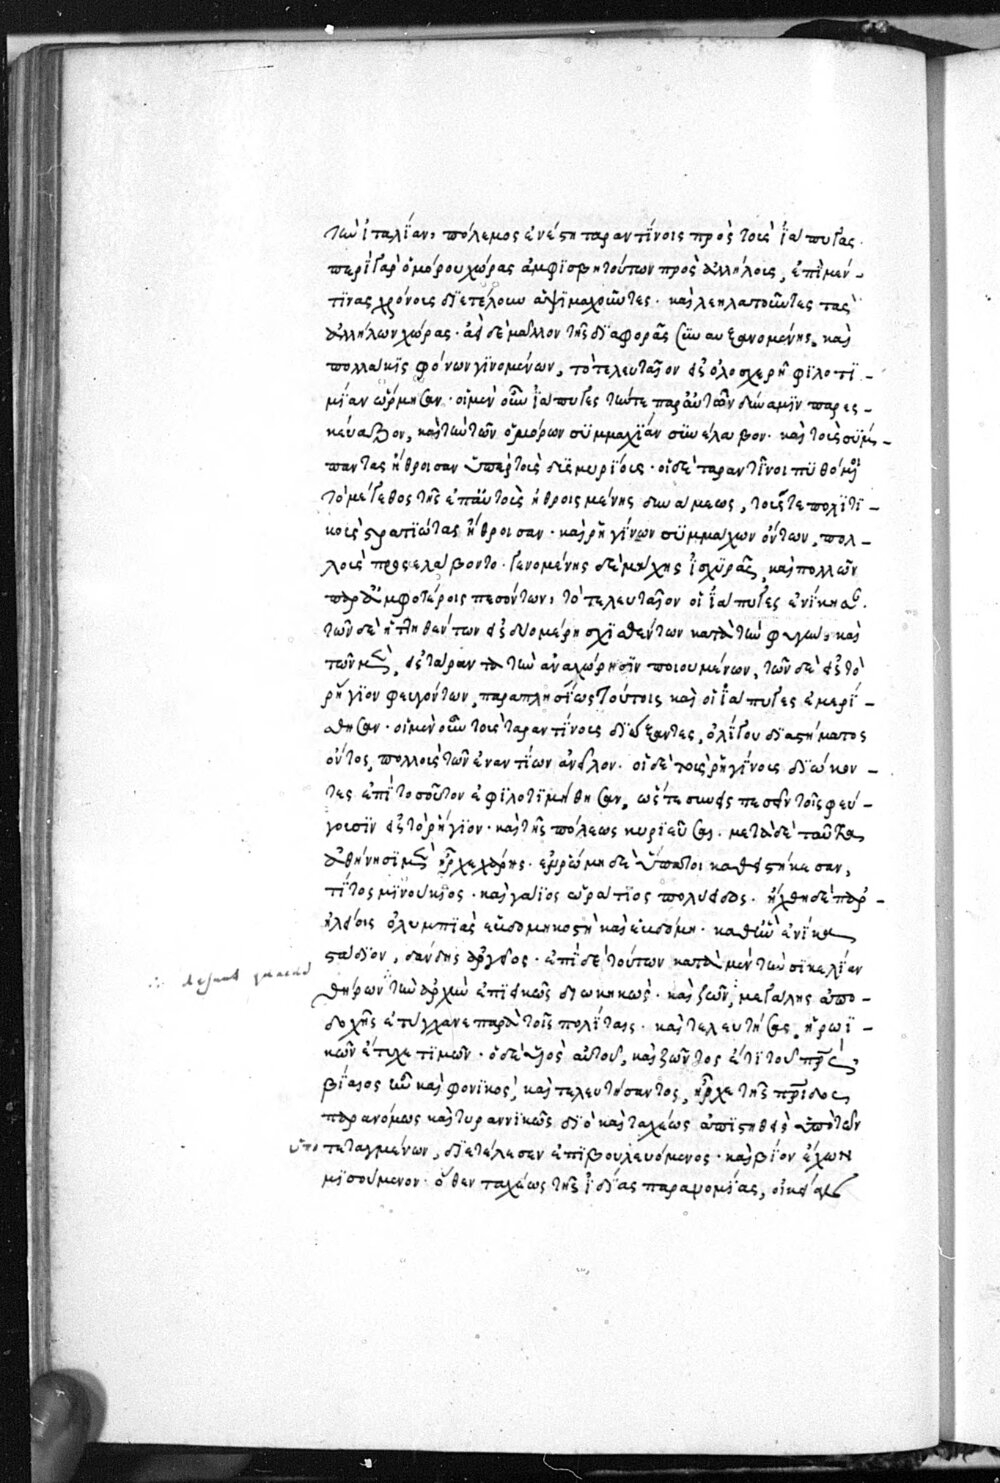 τὴν ἰταλίαν, πόλεμος ἐνέστη ταραντίνοις πρὸς τοὺς ἰάπυγας.
περὶ γὰρ ὁμόρου χώρας ἀμφισβητούντων πρὸς ἀλλήλους, ἐπὶ μέν-
τινας χρόνους διετέλουν ἁψιμαχοῦντες. καὶ λεηλατοῦντες τὰς
ἀλλήλων χώρας. ἀεὶ δὲ μᾶλλον τῆς διαφορᾶς συναυξανομένης, καὶ
πολλάκις φόνων γινομένων, τὸ τελευταῖον εἰς ὁλοσχερῆ φιλοτι-
μίαν ὥρμησαν. οἱ μὲν οὖν ἰάπυγες τήν τε παρ' αὐτῶν δύναμιν παρεσ-
κεύαζον, καὶ τὴν τῶν ὁμόρων συμμαχίαν συνέλαβον. καὶ τοὺς σύμ-
παντας ἤθροισαν ὑπὲρ τοὺς δισμυρίους. οἱ δὲ ταραντῖνοι πυθόμενοι
τὸ μέγεθος τῆς ἐπ' αὐτοὺς ἠθροισμένης δυνάμεως, τούς τε πολιτι-
κοὺς στρατιώτας ἤθροισαν. καὶ ῥηγίνων συμμάχων ὄντων, πολ-
λοὺς προσελάβοντο. γενομένης δὲ μάχης ἰσχυρᾶς, καὶ πολλῶν
παρ' ἀμφοτέροις πεσόντων, τὸ τελευταῖον οἱ ἰάπυγες ἐνίκησαν.
τῶν δὲ ἡττηθέντων εἰς δύο μέρη σχισθέντων κατὰ τὴν φυγὴν, καὶ
τῶν μὲν, εἰς τάραντα τὴν ἀναχώρησιν ποιουμένων, τῶν δὲ εἰς τὸ
ῥήγιον φευγόντων, παραπλησίως τούτοις καὶ οἱ ἰάπυγες ἐμερί-
σθησαν. οἱ μὲν οὖν τοὺς ταραντίνους διώξαντες, ὀλίγου διαστήματος
ὄντος, πολλοὺς τῶν ἐναντίων ἀνεῖλον. οἱ δὲ τοὺς ῥηγίνους διώκον-
τες ἐπὶ τοσοῦτον ἐφιλοτιμήθησαν, ὥστε συνεισπεσεῖν τοῖς φεύ-
γουσιν εἰς τὸ ῥήγιον. καὶ τῆς πόλεως κυριεῦσαι. μετὰ δὲ ταῦτα
ἀθήνησι μὲν ἦρχε χάρης. ἐν ῥώμη δὲ ὕπατοι καθειστήκεσαν,
τίτος μινούκιος. καὶ γαίος ὡράτιος πολύειδος. ἤχθη δὲ παρ-
ἠλείοις ὀλυμπιὰς ἑβδομηκοστὴ καὶ ἑβδόμη. καθ' ἣν ἐνίκα
στάδιον, δάνδης ἀργεῖος. ἐπὶ δὲ τούτων κατὰ μὲν τὴν σικελίαν
θήρων τὴν ἀρχὴν ἐπιεικῶς διῳκηκὼς. καὶ ζῶν, μεγάλης ἀπο-
δοχῆς ἐτύγχανε παρὰ τοῖς πολίταις. καὶ τελευτήσας, ἡρωϊ-
κῶν ἔτυχε τιμῶν. ὁ δὲ υἱὸς αὐτοῦ, καὶ ζῶντος ἔτι τοῦ πρς
βίαιος ἦν καὶ φονικός, καὶ τελευτήσαντος, ἦρχε τῆς πρίδος
παρανόμως καὶ τυραννικῶς διὸ καὶ ταχέως ἀπιστηθεὶς ὑπὸ τῶν
ὑπο τεταγμένων, διετέλεσεν ἐπιβουλευόμενος. καὶ βίον ἔχων
μισούμενον. ὅθεν ταχέως τῆς ἰδίας παρανομίας, οἰκείαν